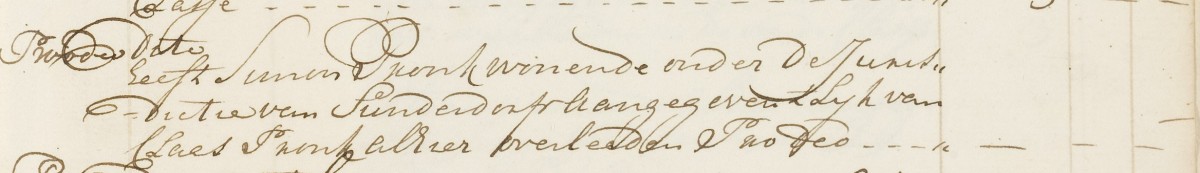 Classe
Prodeo Dito
heeft Simon Pronk wonende onder De Juris„
=dictie van Sunderdorp Aangegeven t Lijk van
Claas Pronk alhier overleeden Prodeo - - - „ —